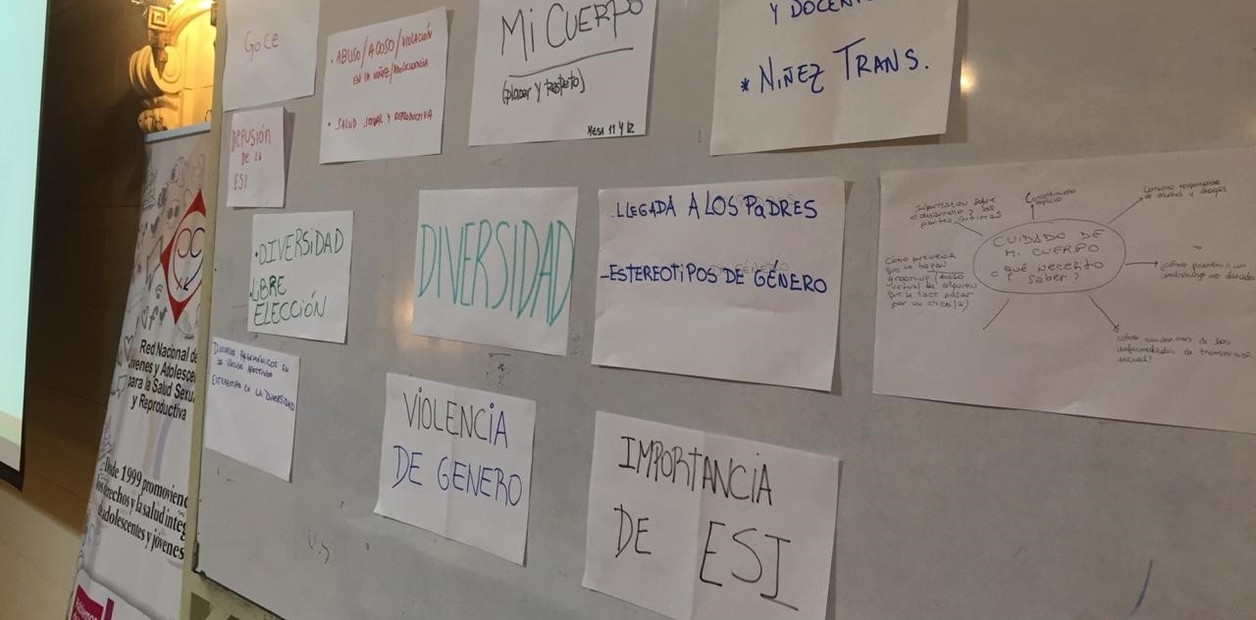 Goce
• ABUSO/ACOSO/VIOLACIÓN
EN LA NIÑEZ/ADOLESCENCIA
• SALUD SEXUAL Y REPRODUCTIVA
MI CUERPO
(placer y respeto)
MESA 11 Y 12
Y DOCENTE
* NIÑEZ TRANS.
DIFUSIÓN
DE LA
ESI
• DIVERSIDAD
• LIBRE
ELECCIÓN
DIVERSIDAD
-LLEGADA A LOS PADRES
-ESTEREOTIPOS DE GÉNERO
CUIDADO DE
MI CUERPO
¿QUÉ NECESITO
SABER?
Información sobre
el desarrollo y las
partes íntimas
Consumo responsable
de alcohol y drogas
Cómo prevenir
que te hagan
grooming (acoso
virtual de alguien
que se hace pasar
por un chico/a)
¿Cómo cuidarnos de las
enfermedades de transmisión
sexual?
EN
LA DIVERSIDAD
VIOLENCIA
DE GENERO
IMPORTANCIA
DE ESI
Red Nacional de
Jóvenes y Adolescentes
para la Salud Sexual
y Reproductiva
Desde 1999 promoviendo
los derechos y la salud integral
de adolescentes y jóvenes